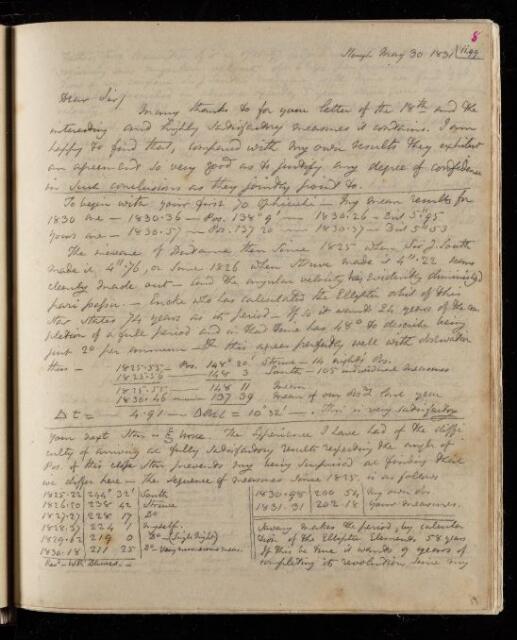 8
Slough May 30 1831
Dear Sir/
Many thanks to for your letter of the 18th and the
interesting and highly satisfactory measures it contains. I am
happy to find that, compared with my own results they exhibit
an agreement so very good as to justify any degree of confidence
in such conclusions as they jointly point to.
To begin with your first 70 Ophiuchi - My mean results for
1830 are - 1830.36 - Pos. 138° 9' - 1830.26 - Dist 5".95
Yours are - 1830.57 - Pos. 137 20 - 1830.57 - Dist 5".53
The increase of Distance then since 1825 when Sir J. South
made it, 4".76, or since 1826 when Struve made it 4".22 seems
clearly made out - and the angular velocity has evidently diminished
pari passu. - Encke who has calculated the Elliptic orbit of this
Star states 74 years as its period - If so it wants 24 years of the com
pletion of a full period and in that time has 48° to describe being
just 2° per annum - this agrees perfectly well with observation
thus - 1825.55 - Pos. 148° 20' Struve - 14 nights Obs.
1825.56 - 148 3 South - 105 individual measures
1825.55 - 148 11 Mean
1830.46 - 137 39 mean of our Res.ts last year
Δt = 4.91 - ΔPos = 10° 32' - This is very satisfactory
Your next Star is ξ Ursae. The Experience I have had of the diffi-
culty of arriving at fully satisfactory results regarding the angle of
Pos. of this close Star prevents my being surprised at finding that
we differ here - the sequence of measures since 1825 is as follows
1825.22 244° 32' South
1826.20 238 42 Struve
1827.27 228 17 Do
1828.37 224 7 myself.
1829.62 219 0 Do - (Single Night)
1830.18 211 25 Do - Very numerous meas.
1830.98 200 54 My own obs.
1831.31 202 18 Your measures.
Savary makes the period, by calcula-
tion of the Elliptic Elements 58 years
If this be true it wants 9 years of
completing its revolution since my